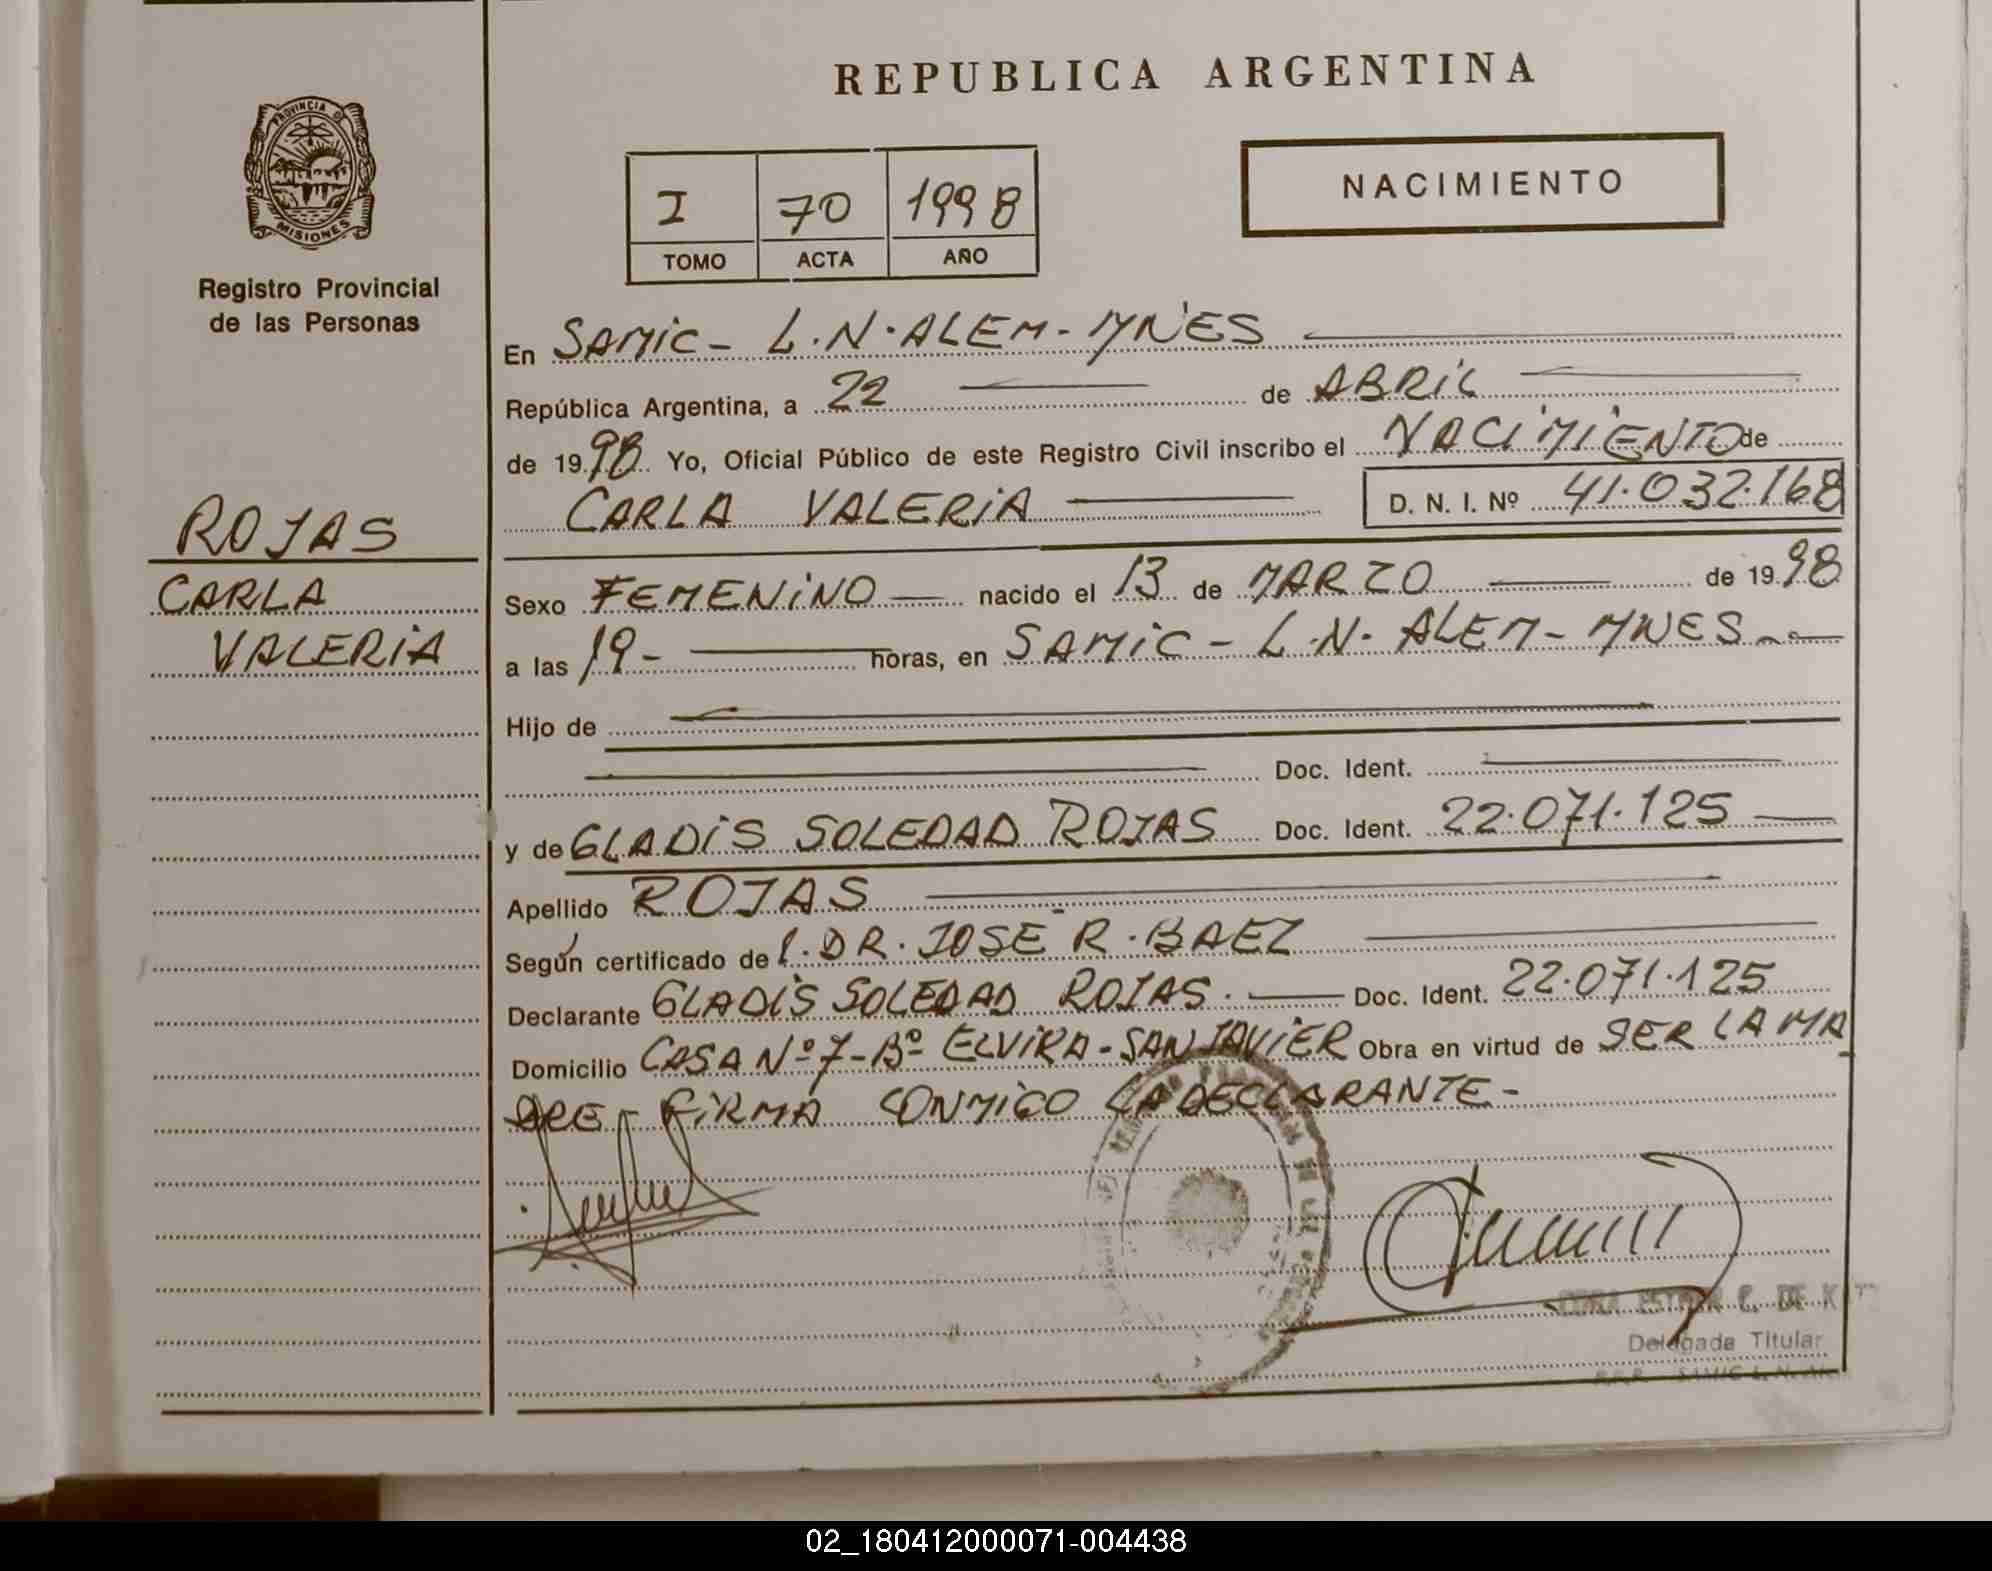 REPUBLICA ARGENTINA
PROVINCIA DE
MISIONES
Registro Provincial
de las Personas
I 70 1998
TOMO ACTA AÑO
NACIMIENTO
En SAMIC - L.N. ALEM - MNES
República Argentina, a 22 de ABRIL
de 1998 Yo, Oficial Público de este Registro Civil inscribo el NACIMIENTO de
CARLA VALERIA D. N. I. Nº 41.032.168
ROJAS
CARLA
VALERIA
Sexo FEMENINO nacido el 13 de MARZO de 1998
a las 19- horas, en SAMIC - L.N. ALEM - MNES
Hijo de
Doc. Ident.
y de GLADIS SOLEDAD ROJAS Doc. Ident. 22.071.125
Apellido ROJAS
Según certificado de l. DR. JOSE R. BAEZ
Declarante GLADIS SOLEDAD ROJAS. Doc. Ident. 22.071.125
Domicilio CASA Nº 7 - Bº ELVIRA - SAN JAVIER Obra en virtud de SER LA MA
DRE - FIRMA CONMIGO LA DECLARANTE -
C. DE
Delegada Titular
SAMIC L. N.
02_180412000071-004438